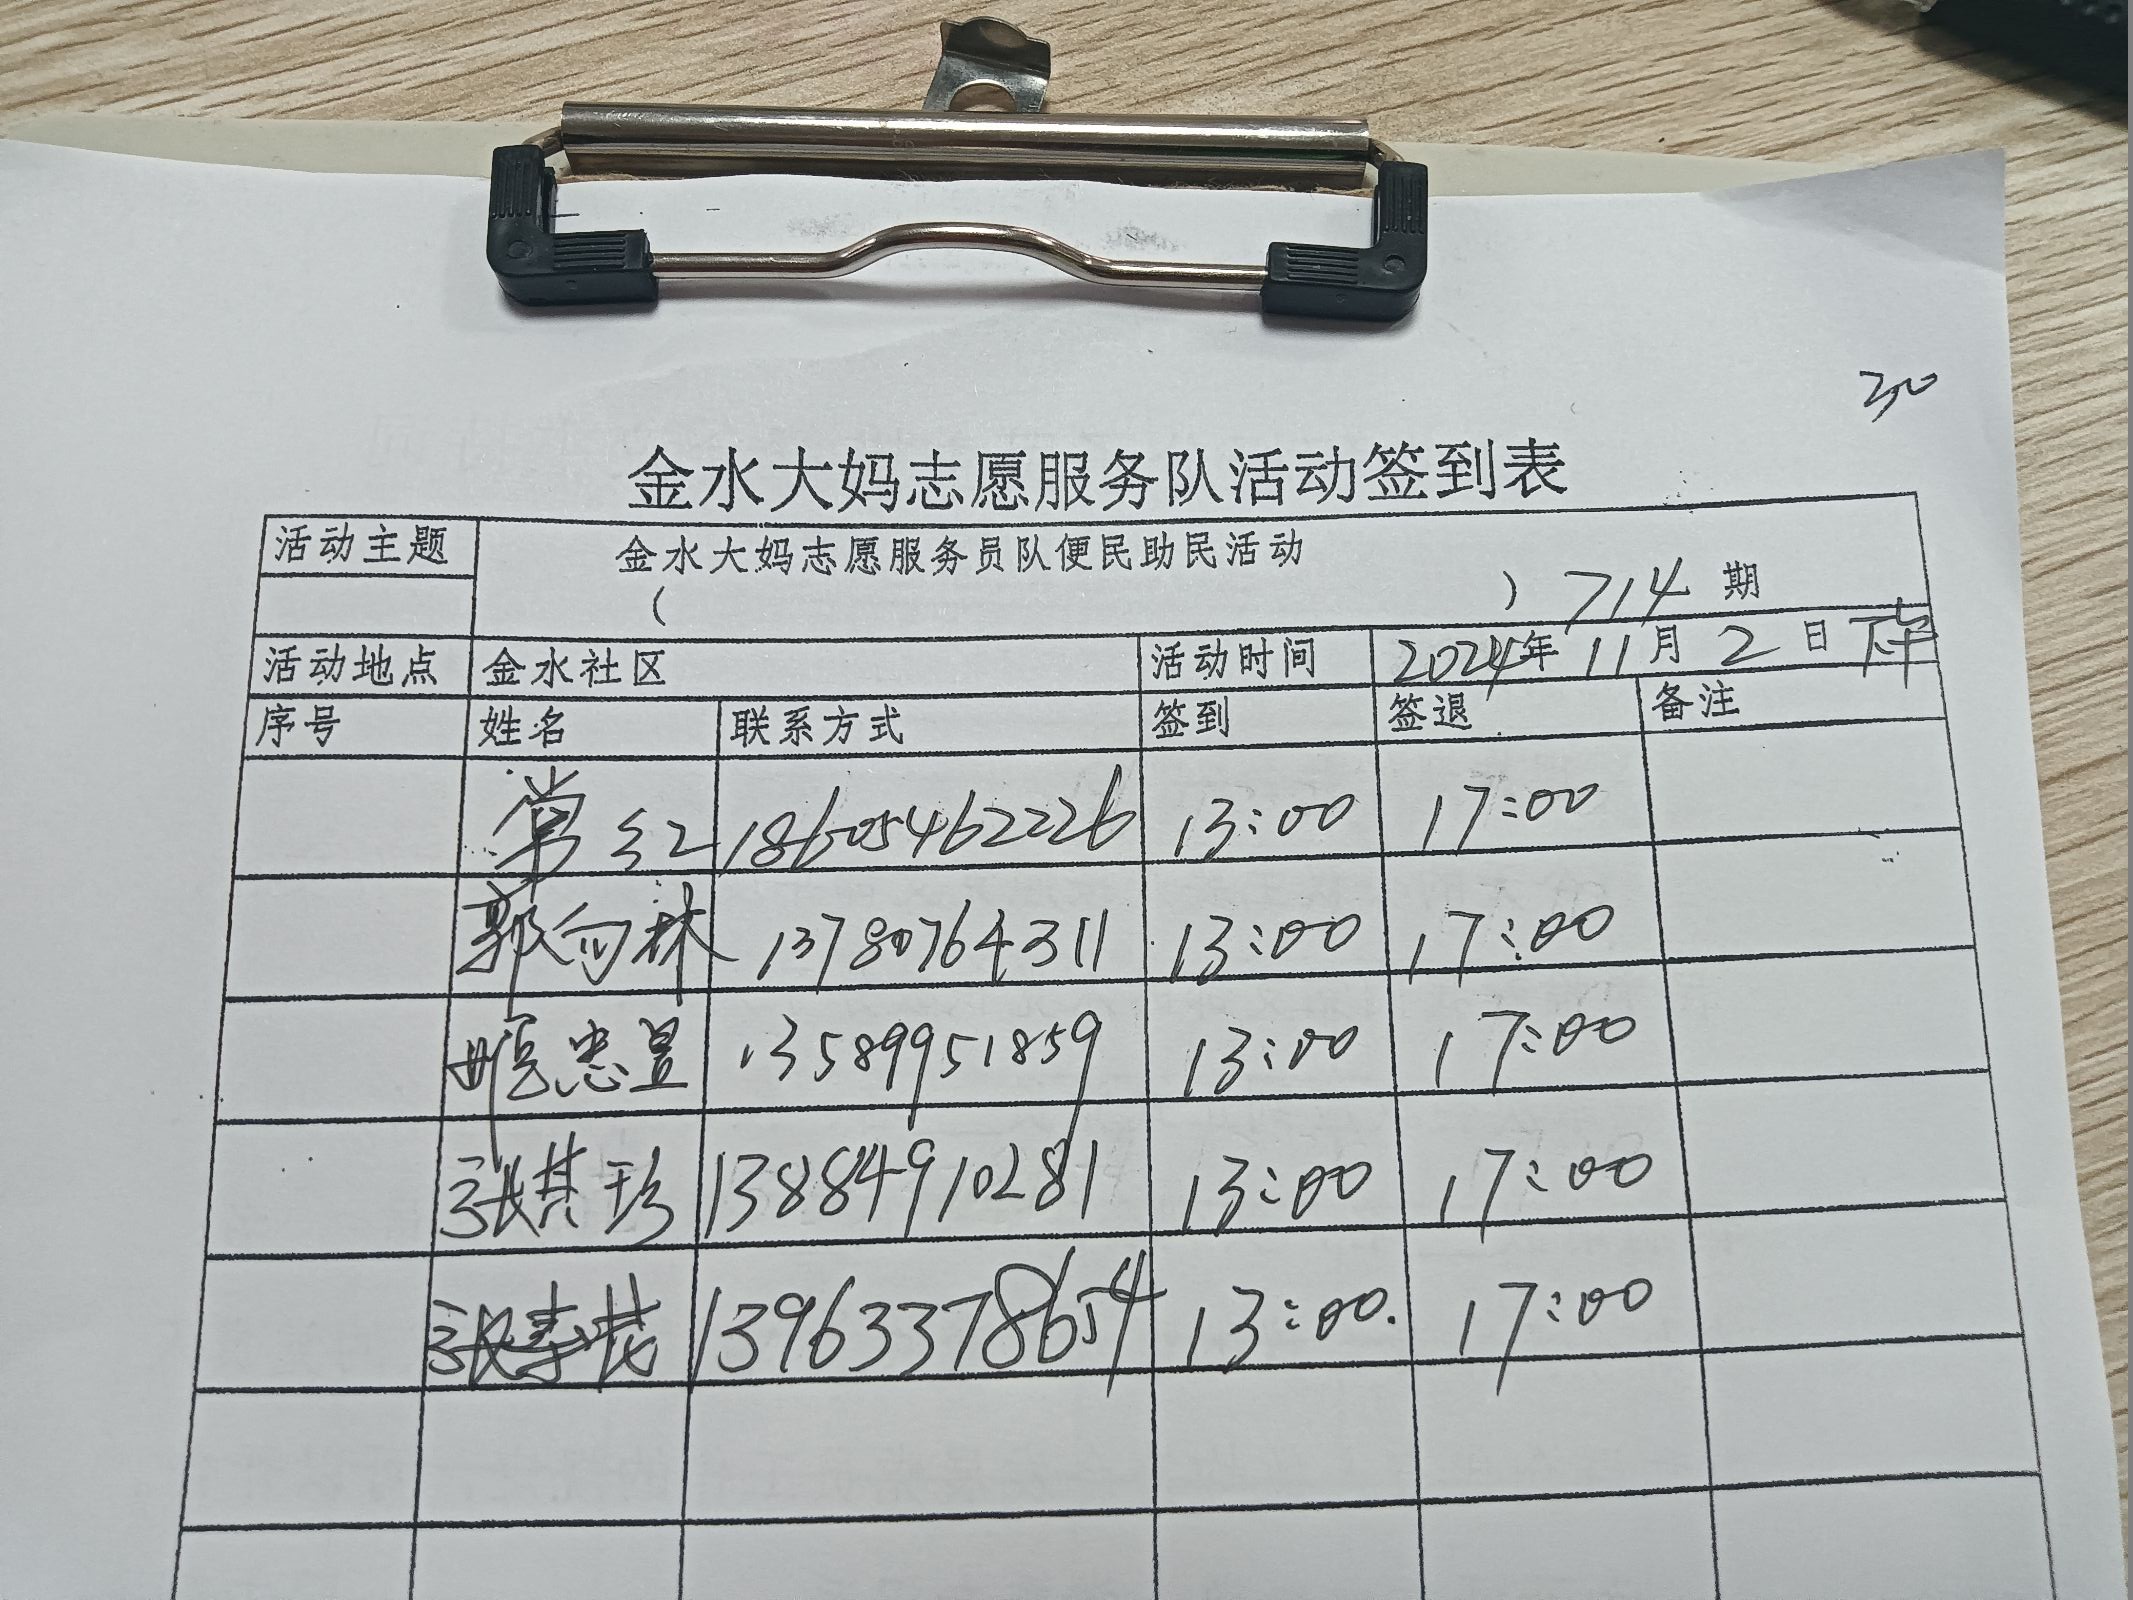 30
金水大妈志愿服务队活动签到表
活动主题 金水大妈志愿服务员队便民助民活动
( ) 714 期
活动地点 金水社区 活动时间 2024年 11月 2日 下午
序号 姓名 联系方式 签到 签退 备注
常红 18605462226 13:00 17:00
郭向林 13780764311 13:00 17:00
忠 13589951859 13:00 17:00
张其珍 13884910281 13:00 17:00
张 13963378654 13:00. 17:00